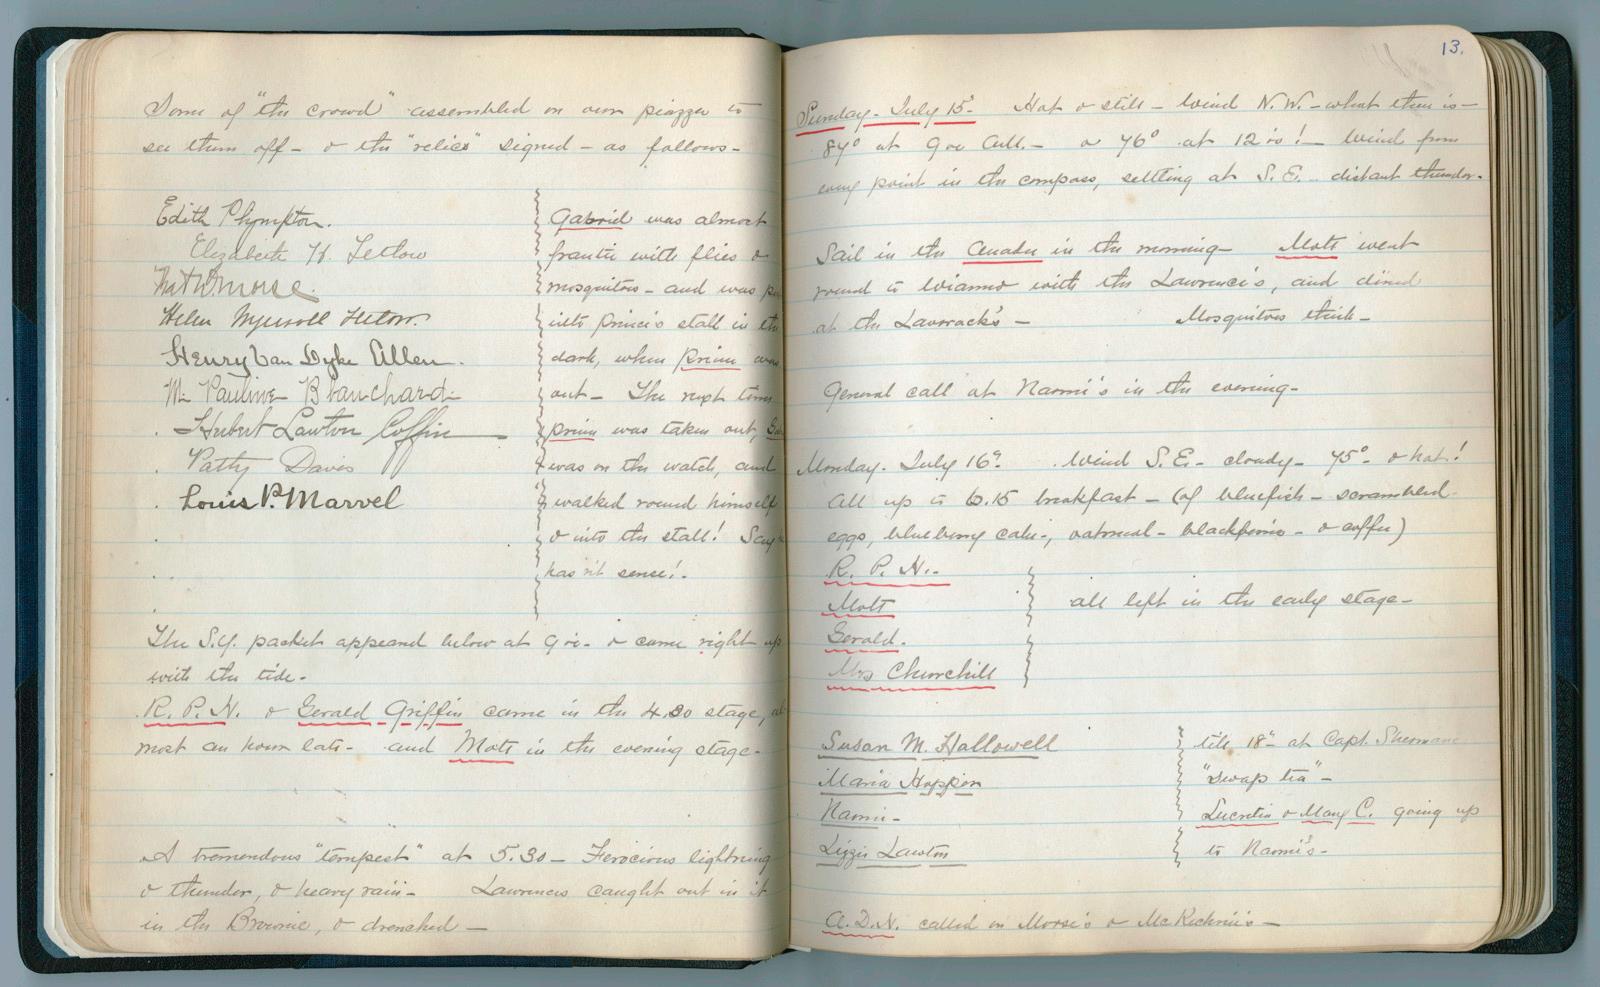 Some of "the crowd" assembled on our piazza to
see them off - & the "relics" signed - as follows -
Edith Plympton.
Elizabeth H. Tetlow
Nat W. Morse.
Helen Ingersoll Tetlow.
Henry Van Dyke Allen.
M. Pauline Blanchard
Hubert Lawton Coffin
Patty Davis
Louis P. Marvel
Gabriel was almost
frantic with flies &
mosquitoes - and was
into Prince's stall in the
dark, when Prince was
out - The next time
Prince was taken out,
was on the watch, and
walked round himself
& into the stall! Say
hasn't sense!.
The S.Y. packet appeared below at 9 & came right up
with the tide.
R. P. N. & Gerald Griffin came in the 4.30 stage, al-
most an hour late - and Mott in the evening stage -
A tremendous "tempest" at 5.30 - Ferocious lightning
& thunder, & heavy rain - Lawrences caught out in it
in the Brownie, & drenched -
13.
Sunday - July 15. Hot & still - Wind N.W. - what there is -
84° at 9 - & 76° at 12 ! - Wind from
every point in the compass, settling at S.E. - distant thunder.
Sail in the in the morning - Mott went
round to Wianno with the Lawrence's, and dined
at the - Mosquitoes thick -
General call at Naomi's in the evening -
Monday - July 16. Wind S.E. - cloudy - 75° - & hot!
All up to 6.15 breakfast - (of bluefish - scrambled
eggs, blueberry cake -, oatmeal - blackberries - & coffee)
R. P. N. -
Mott
Gerald.
Mrs Churchill
all left in the early stage -
Susan M. Hallowell
Maria Hoppin
Naomi -
Lizzie Lawton
till 18" at Capt.
"swap tea" -
Lucretia & Mary C. going up
to Naomi's -
A. D. N. called on Morse's & McKechnie's -